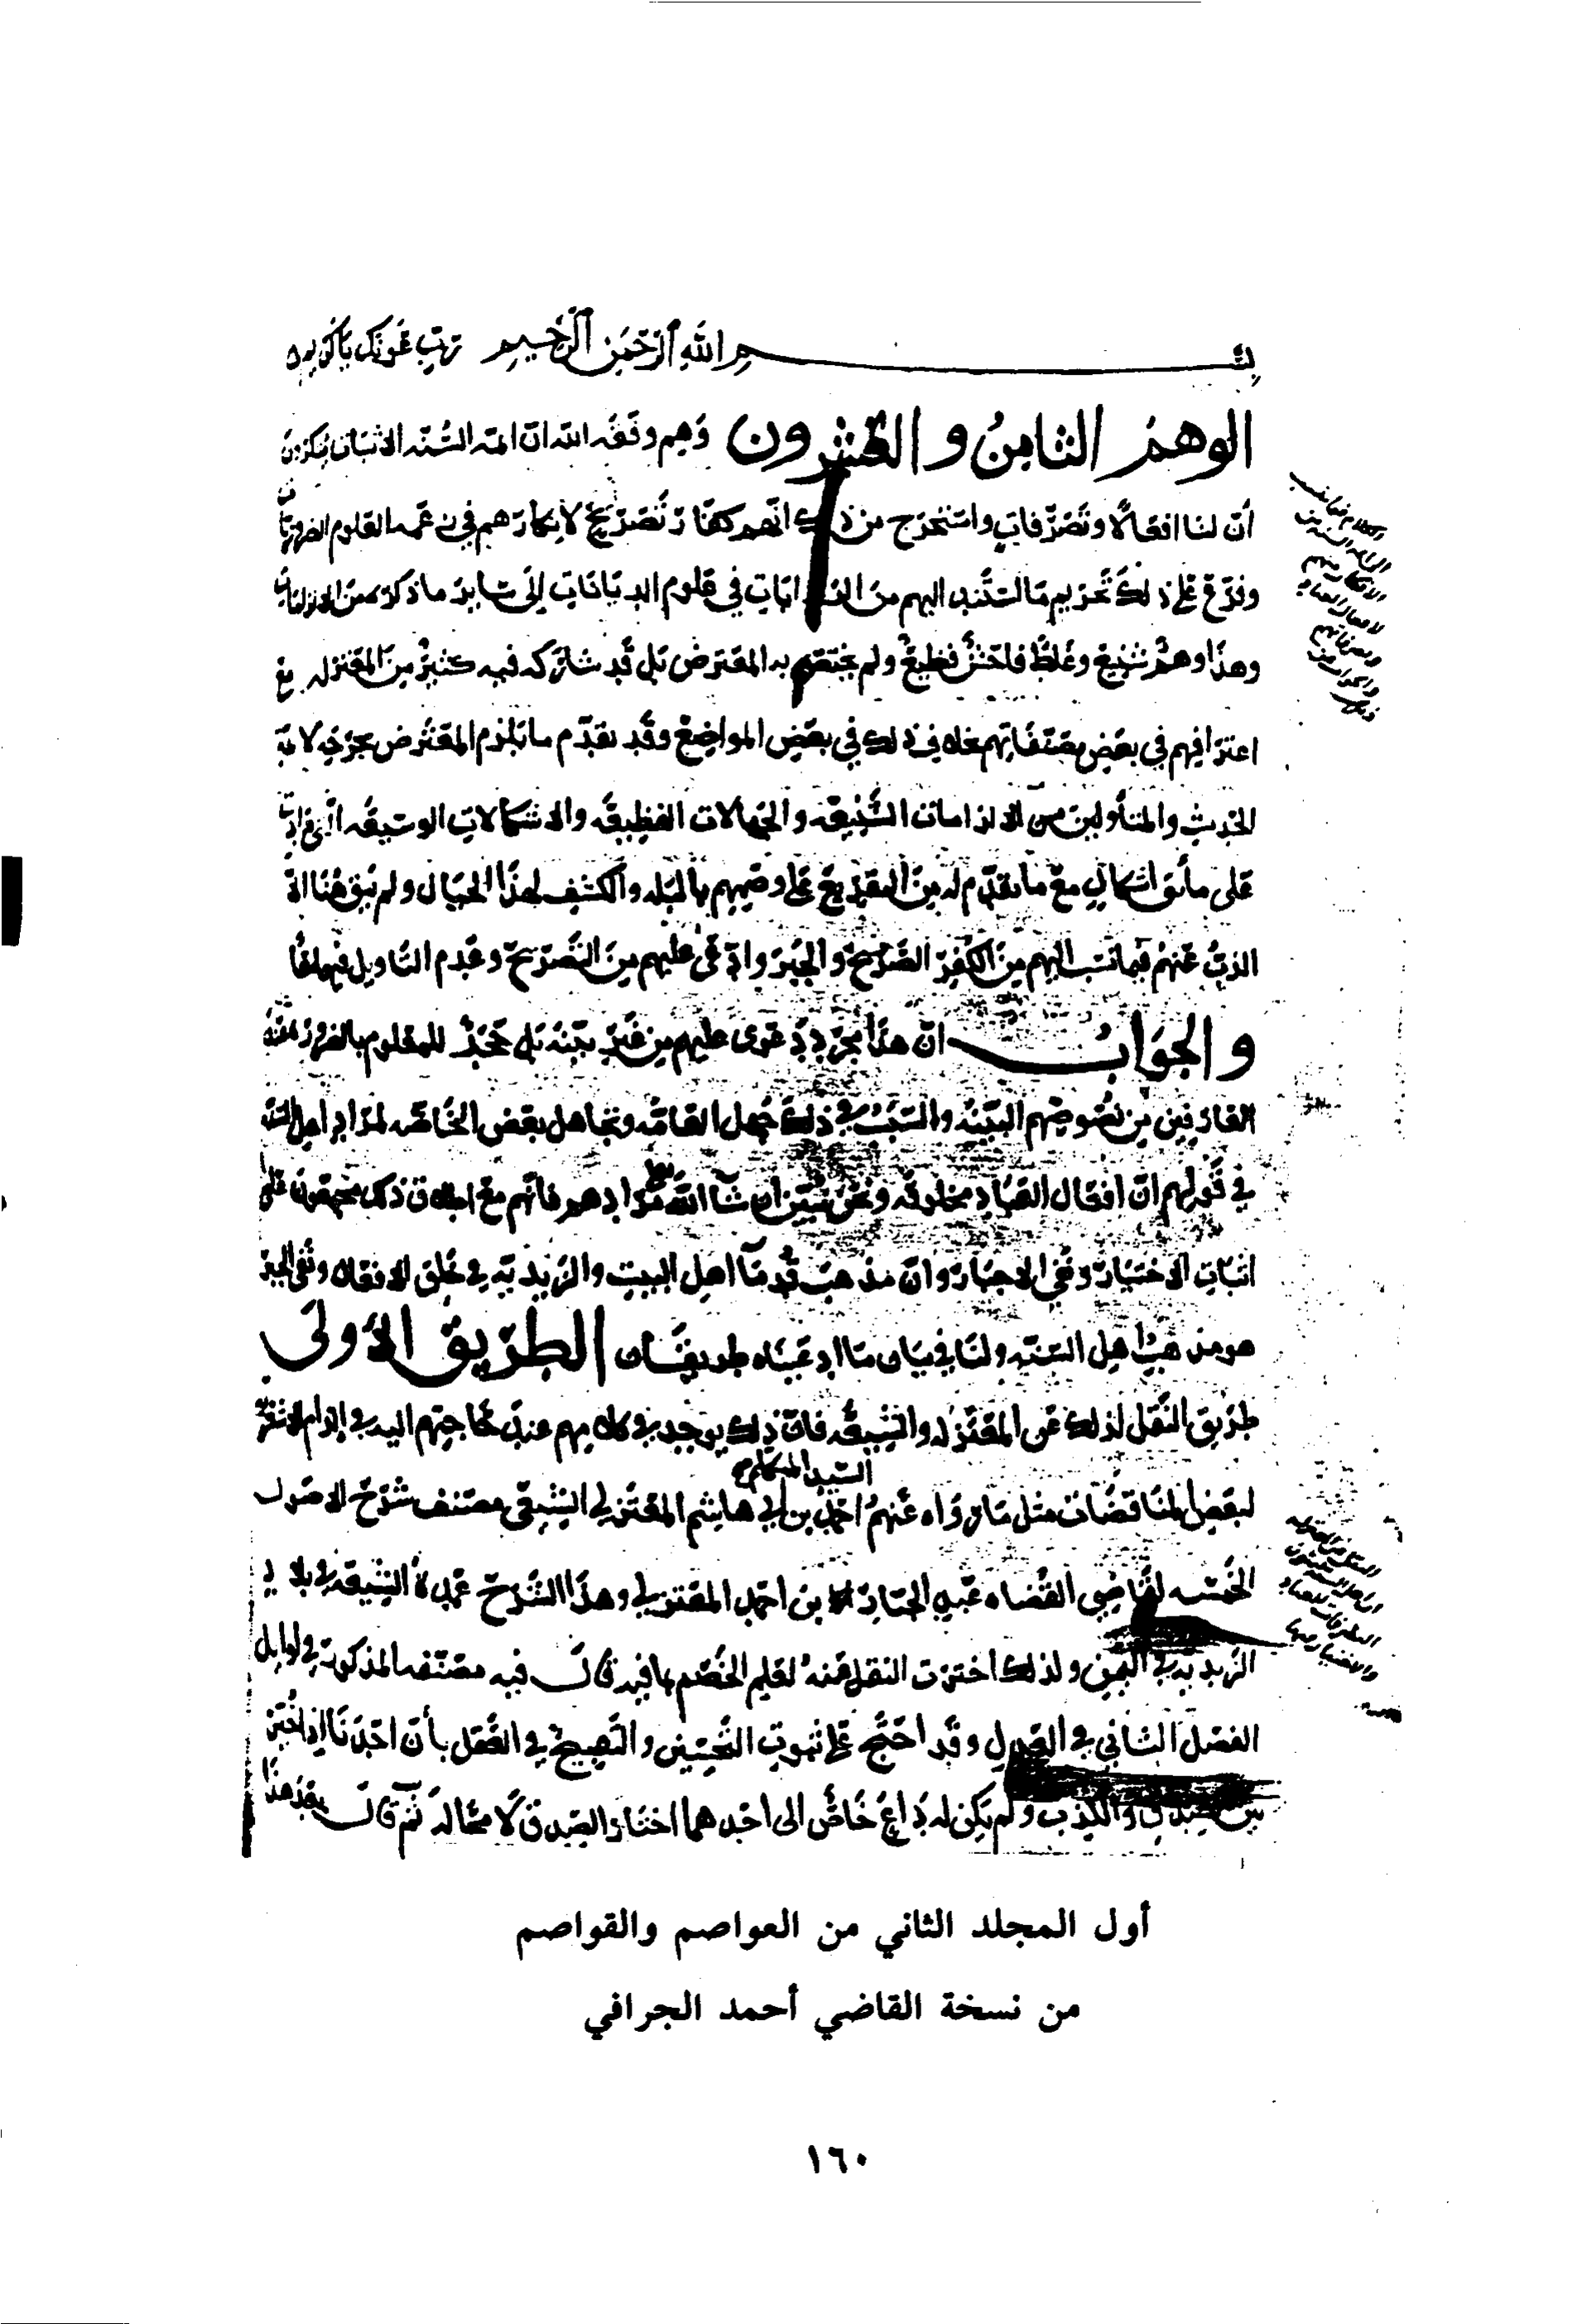 بسم الله الرحمن الرحيم رب عونك يا كريم
الوهم الثامن والعشرون وهم وفقه الله ان ائمة السنه الاثبات ينكرون
أن لنا افعالا وتصرفات واستخرج من ذلك انهم كفار تصريح لانكارهم في زعمه العلوم الضروريات
وفرع على ذلك تحريم ما استند اليهم من الروايات في علوم الديانات إلى سائر ما ذكره من الالزامات
وهذا وهم شنيع وغلط فاحش فظيع ولم يختص به المعترض بل قد شاركه فيه كثير من المعتزله مع
اعترافهم في بعض مصنفاتهم بخلاف ذلك في بعض المواضع وقد تقدم ما يلزم المعترض بجرحه لائمة
الحديث والمتأولين من الالزامات الشنيعه والجهالات الفظيعه والاشكالات الوسيعه التي زادت
على مائتي اشكال مع ما تقدم له من التقريع على وصيهم بالبله والكشف لهذا الخيال ولم يبق هنا الا
الذب عنهم فيما نسب اليهم من الكفر الصريح والجبر وادعى عليهم من التصريح وعدم التاويل فيهما
والجواب ان هذا مجرد دعوى عليهم من غير بينة بل جحد للمعلوم بالضرورة عند
العارفين من نصوصهم البينه والسبب في ذلك جهل العامه وتجاهل بعض الخاصه لمراد اهل السنه
في قولهم ان افعال العباد مخلوقه ونحن نبين ان شاء الله مرادهم فانهم مع اطلاق ذلك مجمعون على
اثبات الاختيار ونفي الاجبار وان مذهب قدماء اهل البيت والزيديه في خلق الافعال ونفي الجبر
هو مذهب اهل السنه ولنا في بيان ما ادعيناه طريقان الطريق الأولى
طريق النقل لذلك عن المعتزله والشيعه فان ذلك يوجد في كلامهم عند حاجتهم اليه في الزام الاشعريه
السيد المتكلم
لبعض المناقضات مثل ما رواه عنهم احمد بن أبي هاشم المعتزلي الشيعي مصنف شرح الاصول
الخمسه لقاضي القضاه عبد الجبار بن احمد المعتزلي وهذا الشرح عمدة الشيعه في بلاد
الزيديه في اليمن ولذلك اخترت النقل منه لعلم الخصم بما فيه قال فيه مصنفه المذكور في اوايل
الفصل الثاني في العدل وقد احتج على ثبوت التحسين والتقبيح في العقل بأن احدنا اذا خير
بين الصدق والكذب ولم يكن له داع خاص الى احدهما اختار الصدق لا محاله ثم قال بعد هذا
أول المجلد الثاني من العواصم والقواصم
من نسخة القاضي أحمد الجرافي
١٦٠